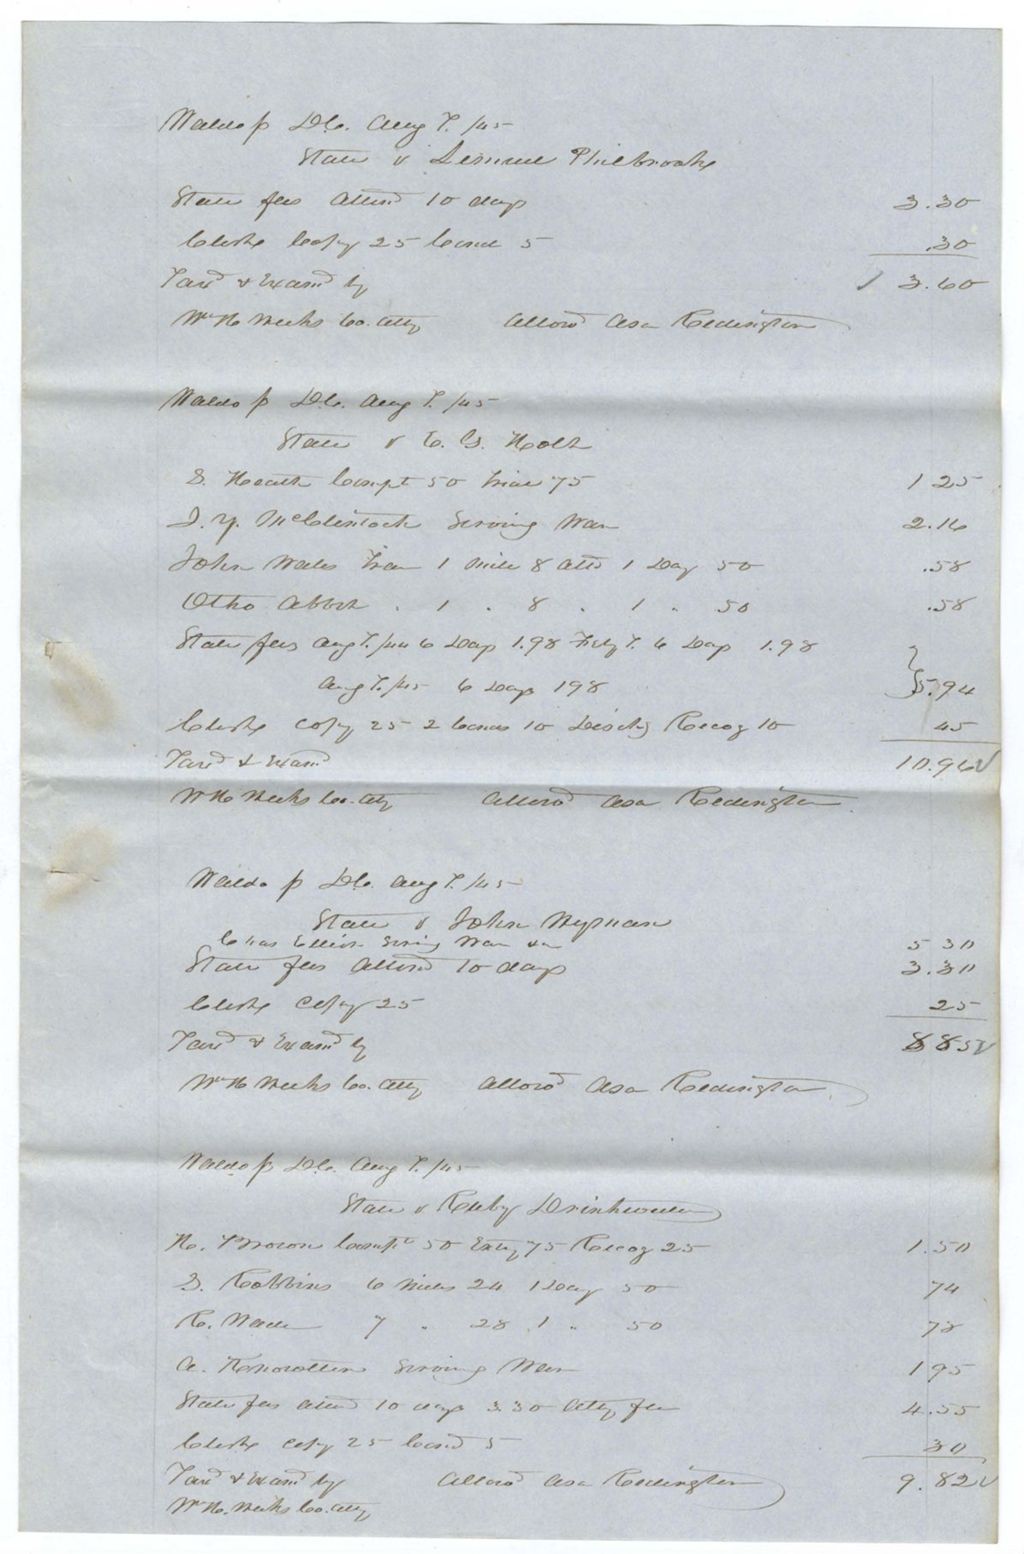 Waldo ss D.C. Aug T. /45
State v Lemuel Philbrooke
State fees Attend 10 days 3.30
Clerks Copy 25 Cond 5 .30
Taxd & Examd by 3.60
Wm H Weeks Co. Atty Allowd Asa Redington
Waldo ss D.C. Aug T. /45
State v E. G. Holt
S. Heath Compt 50 Trial 75 1 25
J. Y. McClintock Serving War 2.16
John Wales Trav 1 mile 8 attd 1 Day 50 .58
Otho Abbot . 1 . 8 . 1 . 50 .58
State fees Aug T. /44 6 Days 1.98 Feby T. 6 Days 1.98
Aug T. /45 6 Days 198 5.94
Clerks copy 25 2 10 Dischg Recog 10 45
Taxd & Examd 10.96
Wm H Weeks Co. Atty Allowd Asa Redington
Waldo ss D.C. Aug T. /45
State v John Wyman
Chas Elliot Serving War 5 30
State fees Attend 10 days 3.30
Clerks Copy 25 25
Taxd & Examd by 8 85
Wm H Weeks Co. Atty Allowd Asa Redington
Waldo ss D.C. Aug T. /45
State v Ruby Drinkwater
H. Brown Compt 50 Entry 75 Recog 25 1.50
S. Robbins 6 miles 24 1 Day 50 74
R. Wade 7 . 28 1 . 50 78
A. Knowlton Serving War 1 95
State fees attend 10 days 3.30 Atty fee 4.55
Clerks copy 25 Cond 5 30
Taxd & Examd by Allowd Asa Redington 9.82
Wm H. Weeks Co. Atty